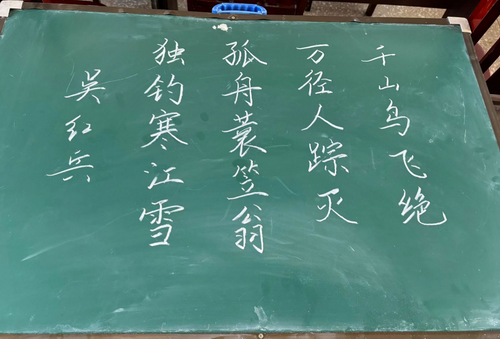 千山鸟飞绝
万径人踪灭
孤舟蓑笠翁
独钓寒江雪
吴红兵